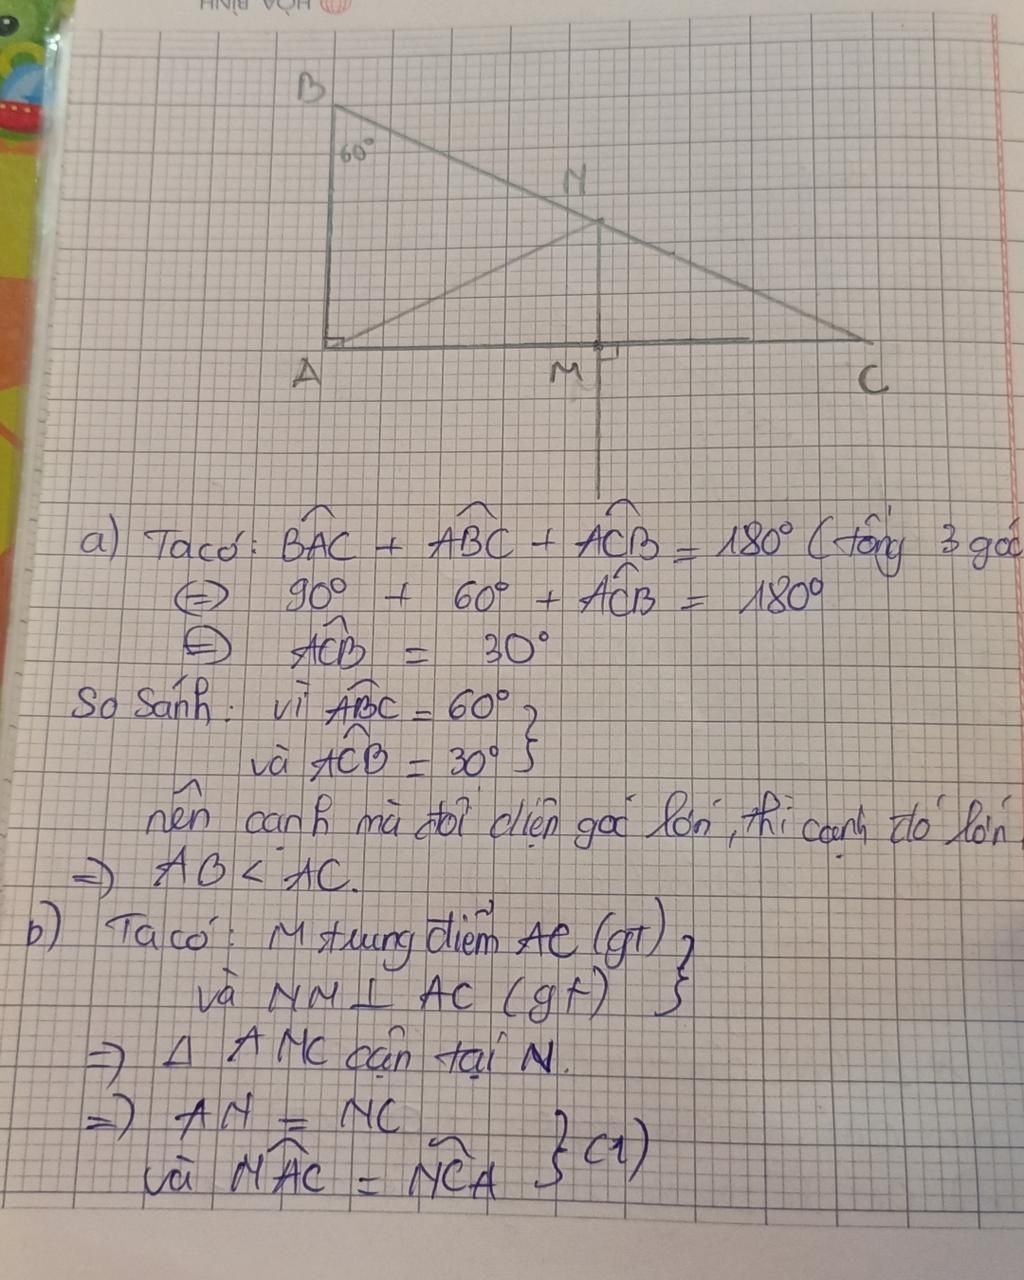 HÒA BÌNH
B
60°
N
A
M
C
a) Ta có: BÂC + AB̂C + AĈB = 180° (tổng 3 góc
⇔ 90° + 60° + AĈB = 180°
⇔ AĈB = 30°
So sánh: vì AB̂C = 60° }
và AĈB = 30° }
nên cạnh mà đối diện góc lớn, thì cạnh đó lớn
⇒ AB < AC.
b) Ta có: M trung điểm AC (gt) }
và NM ⊥ AC (gt) }
⇒ Δ ANC cân tại N.
⇒ AN = NC } (1)
và NÂC = NĈA }